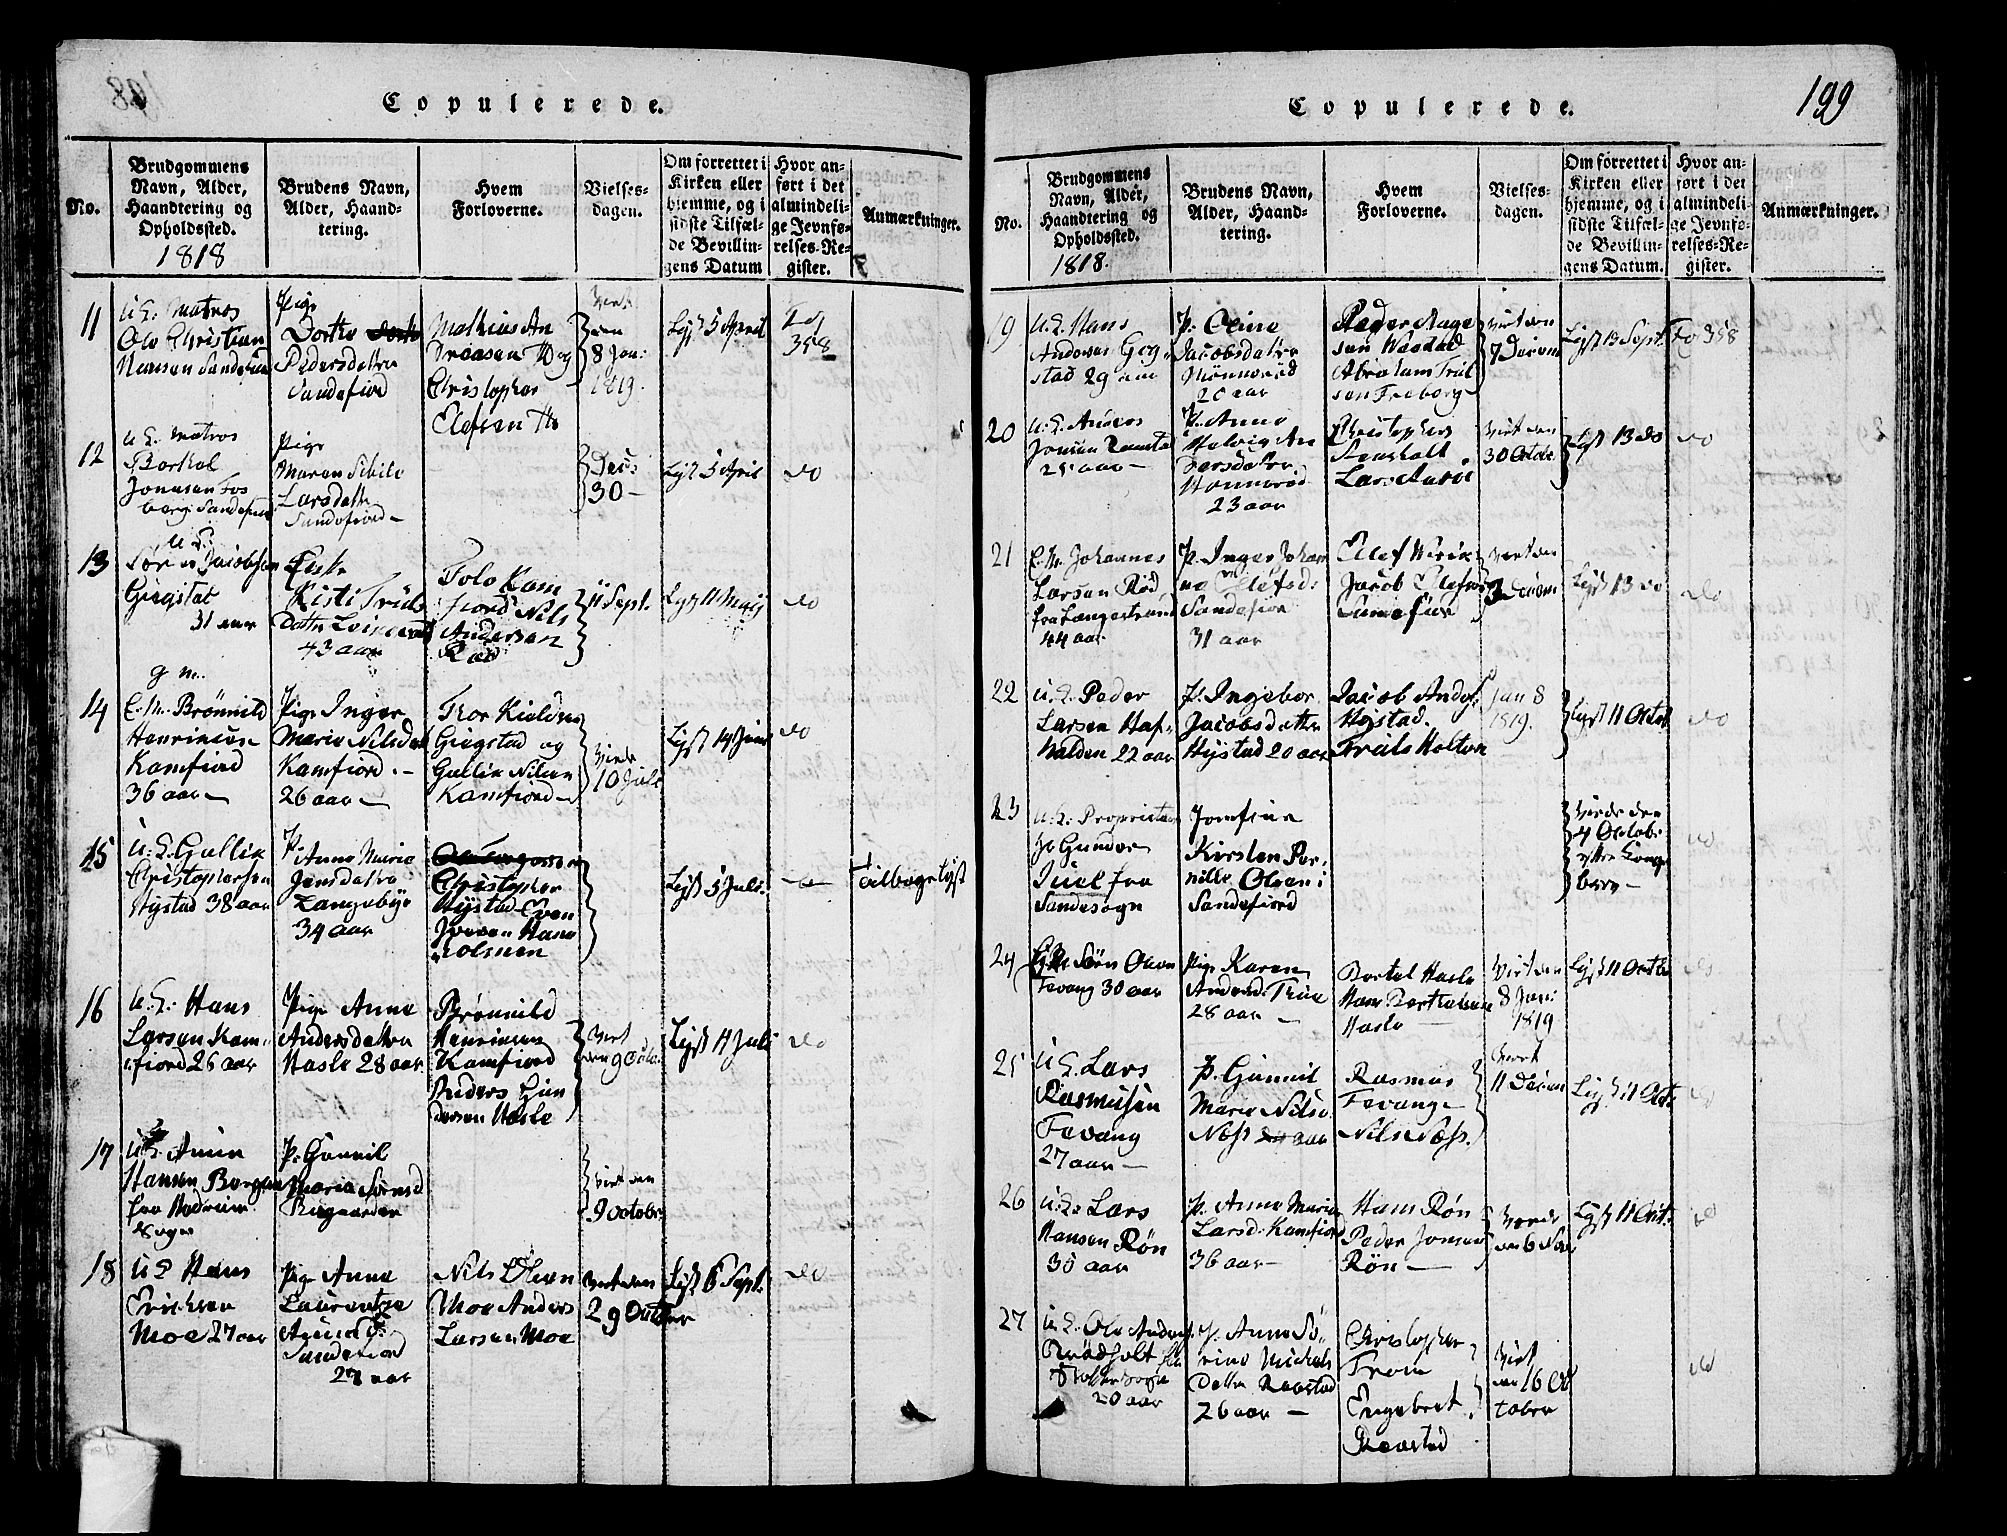 Copulerede.
No.
Brudgommens
Navn, Alder,
Haandtering og
Opholdssted.
1818
Brudens Navn,
Alder, Haand-
tering.
Hvem
Forloverne.
Vielses-
dagen.
Om forrettet i
Kirken eller
hjemme, og i
sidste Tilfæl-
de Bevillin-
gens Datum
Hvor an-
ført i det
almindeli-
ge Jevnfø-
relses-Re-
gister.
Anmærkninger.
11
U. C. Matros
Ole Christian
Hansen Sandefiord
Pige
Dorthe
Pedersdatter
Sandefiord
Mathias An
dreasen og
Christopher
Elefsen
Viet
den
8 Jan:
1819.
Lyst 5 April
Fol
358
12
U. C. Matros
Borthol
Jonasen Fos
berg Sandefiord
Pige
Maren Sibille
Larsdatter
Sandefiord
Dec:
30
Lyst 5 April
do
13
U. C.
Søren Jacobsen
Giegstad
31 aar
Enke
Kisti Truls
Datter
43 aar
Tolo Kam
fiord Nils
Andersen
Rød
11 Sept.
Lyst 11 Maij
do
g m.
14
E. M. Brønnild
Henriksen
Kamfiord
36 aar
Pige Inger
Marie Nilsdat
Kamfiord.
26 aar
Thor Kieldsen
Giegstad og
Gullik Nilsen
Kamfiord
Viede
10 Juli
Lyst 14 Juni
do
15
U. C. Gullik
Christophersen
Hystad 38 aar
P.
Anne Marie
Jensdatter
Langebye
34 aar
Christopher
Hystad Even
Iversen Hane
holmen
Lyst 5 Juli.
Tilbagelyst
16
U. C. Hans
Larsen Kam-
fiord 26 aar
Pige Anne
Andersdatter
Hasle 28 aar
Brønnild
Henriksen
Kamfiord
Anders Gun
dersen Hasle
Viet
den 9 Octo.
Lyst 11 Juli
do
17
U. C. Amun
Hansen Bergan
fra Hedrum
Sogn
P. Gunnil
Maria Sørensd
Bugaarden
Viet den
9 October
18
U C Hans
Erichsen
Moe 27 aar
Pige Anne
Laurentze
Amunds:
Sandefiord
27 aar
Nils Olsen
Moe Anders
Larsen Moe
Viet den
29 October
Lyst 6 Sept.
do
Copulerede.
199
No.
Brudgommens
Navn, Alder,
Haandtering og
Opholdssted.
1818.
Brudens Navn,
Alder, Haand-
tering.
Hvem
Forloverne.
Vielses-
dagen.
Om forrettet i
Kirken eller
hjemme, og i
sidste Tilfæl-
de Bevillin-
gens Datum.
Hvor an-
ført i det
almindeli-
ge Jevnfø-
relses-Re-
gister.
Anmærkninger.
19
U. C. Hans
Andersen Gog-
stad 29 aar
P. Oline
Jacobsdatter
Hønnerød
20 aar
Peder Aage
sen
Abraham Trul
sen Freberg
Viet den
7 Decem
Lyst 13 Sept.
Fo 358
20
U. C. Anders
Jonsen Raastad
25 aar
P. Anne
Helvig An
dersdatter
Hønnerød
23 aar
Christopher
Lars Aasrø
Viet den
30 Octbr
Lyst 13 do
do
21
E. M. Johannes
Larsen Rød
fra Langestrand
44 aar
P. Inger Johan
ne Elefsd:
Sandefior
31 aar
Ellef Virik
Jacob Elefsen
Sandefior
Viet den
3 Decem
Lyst 13 do
do
22
U. C. Peder
Larsen Haf-
nalden 22 aar
P. Ingebor
Jacobsdatter
Hystad 20 aar
Jacob Anders
Hystad.
Truls Holtan
Jan 8
1819.
Lyst 11 Octob
do
23
U. C. Proprietair
Hr Gunder
Juel fra
Sandesogn
Jomfrue
Kirsten Per-
nille Olsen i
Sandefiord
Viede den
4 Octobr
efter Konge
brev
do
24
E M Søren Olsen
Fevang 30 aar
Pige Karen
Andersd:
28 aar
Bertel Hasle
Hans Berthelsen
Hasle
Viet den
8 Jan:
1819
Lyst 11 Octb
do
25
U C Lars
Rasmusen
Fevang
27 aar
P. Gunnil
Marie Nilsd
Næss 24 aar
Rasmus
Fevang
Nils Næss.
Viet
11 Decem
Lyst 11 Oct.
do
26
U. C. Lars
Hansen Røn
30 aar
P. Anne Maria
Larsd. Kamfiord
36 aar
Hans Røn
Peder Jonsen
Røn
Viede
den 6 Nov
Lyst 11 Oct.
do
27
U. C. Ole Anders.
Brødholt fra
Stokke Sogn
20 aar
P. Anne Sø-
rine Michels
Datter Raastad
26 aar
Christopher
From
Engebret
Raastad
Viet
den 16 Oc
tober
do